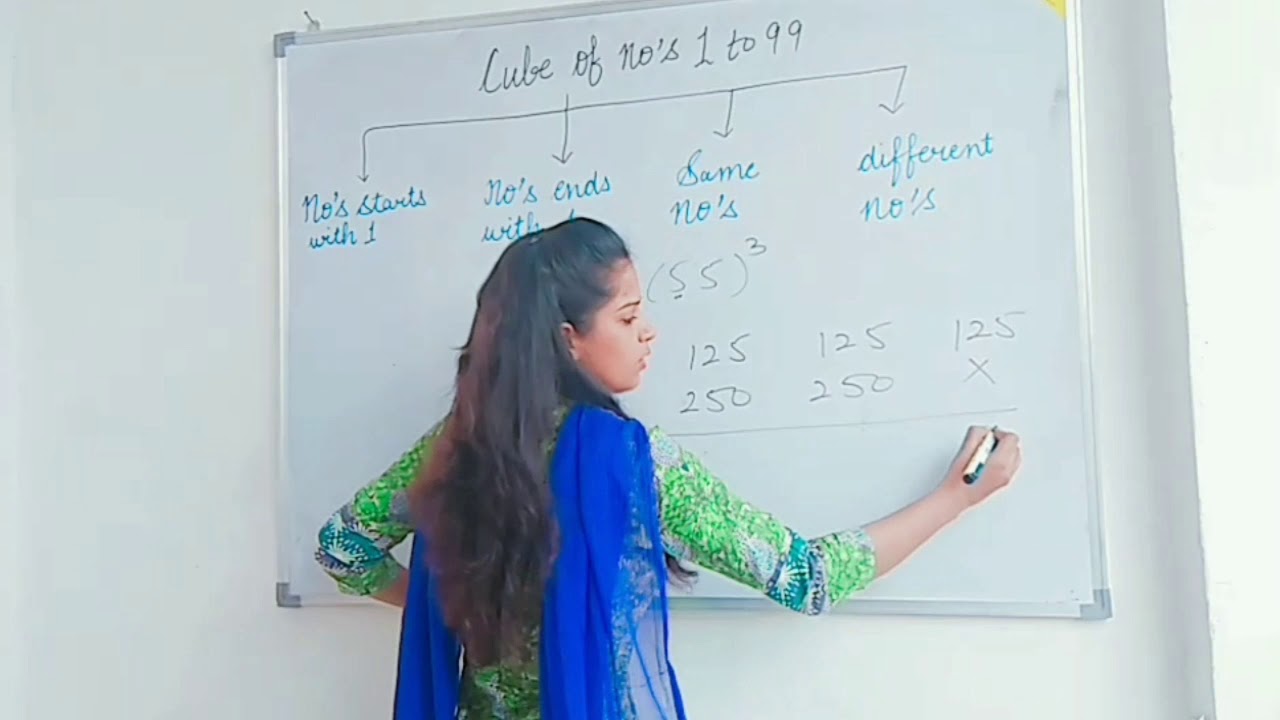 Cube of No's 1 to 99
No's starts
with 1
No's ends
with
Same
No's
different
No's
(55)³
125 125 125
250 250 X